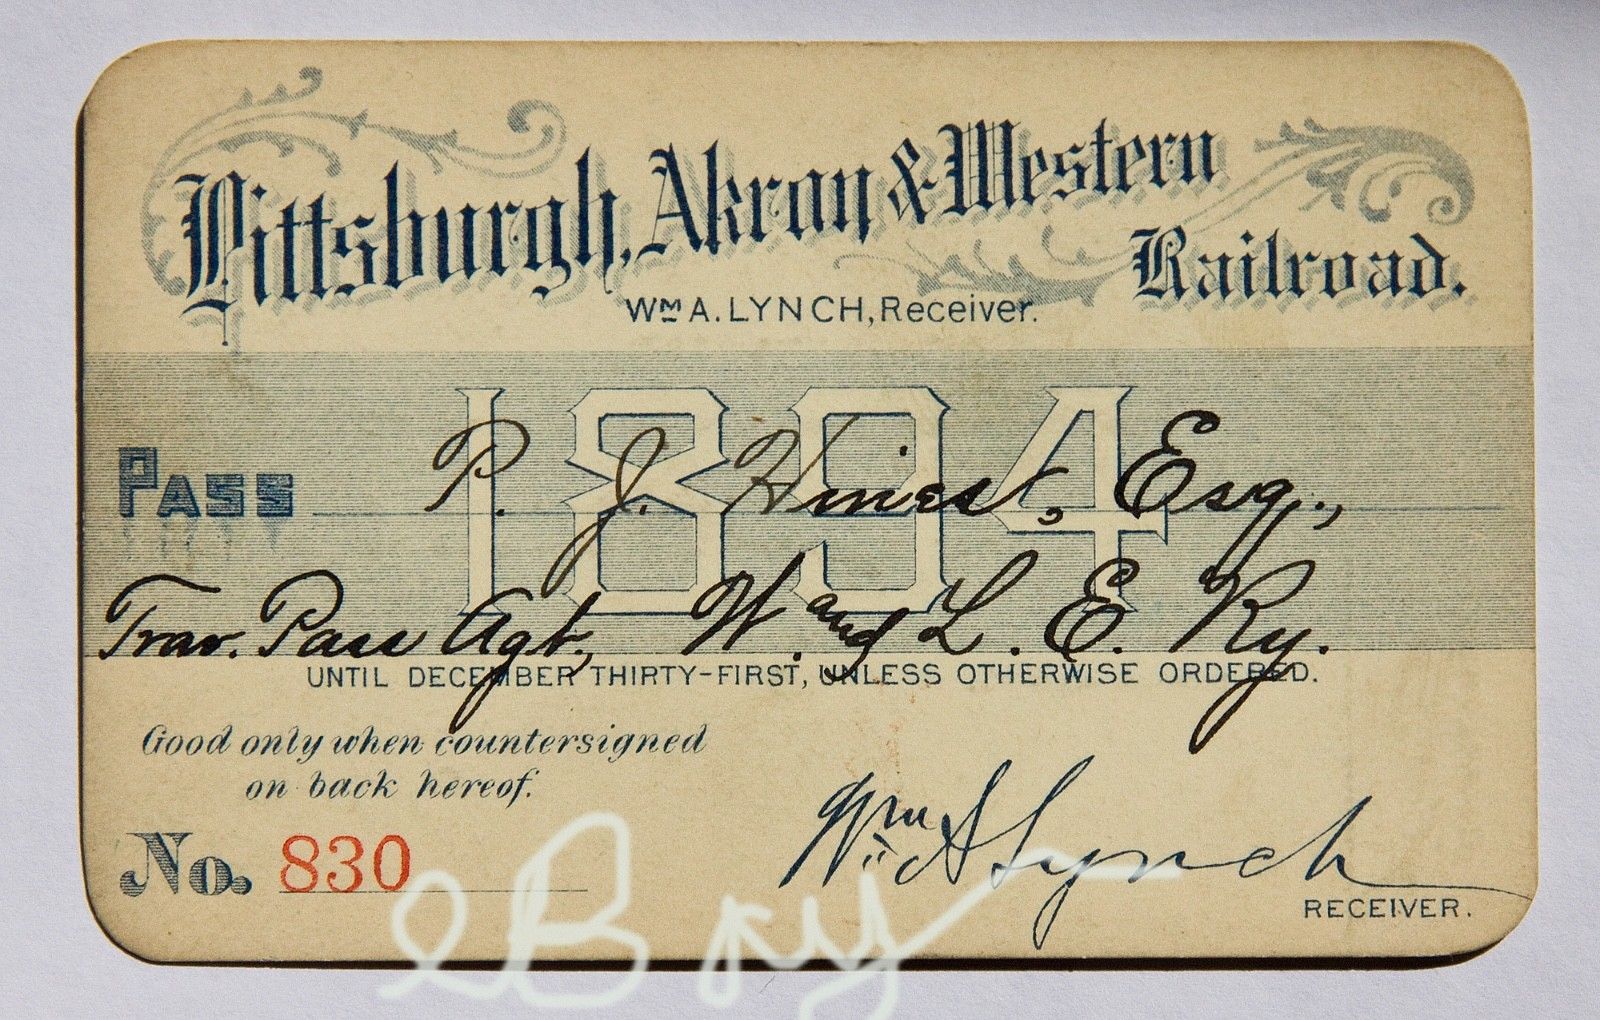 Pittsburgh, Akron & Western
Railroad.
Wm A. LYNCH, Receiver.
1894
PASS P. J. Hirst, Esq.,
Trav. Pass Agt., W. and L. E. Ry.
UNTIL DECEMBER THIRTY-FIRST, UNLESS OTHERWISE ORDERED.
Good only when countersigned
on back hereof.
No. 830
Wm A Lynch
RECEIVER.
eBay